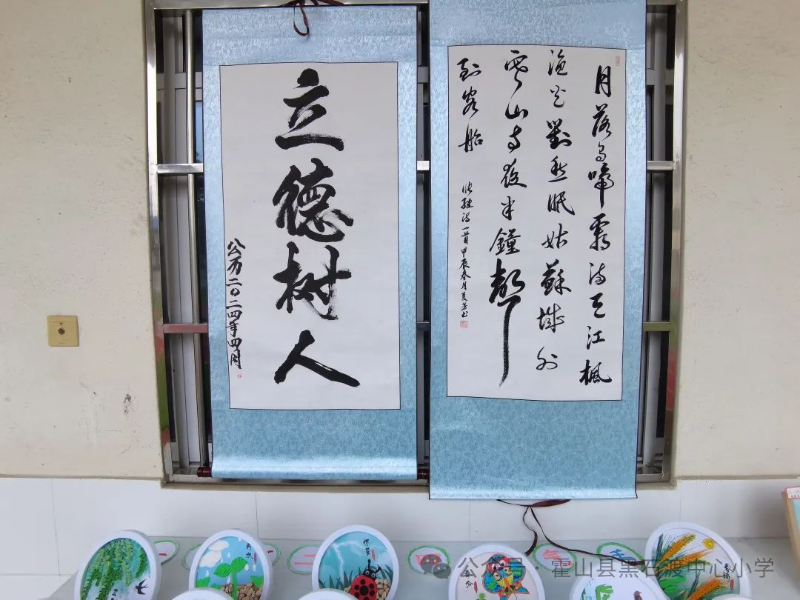 立德树人
公历二〇二四年四月
月落烏啼霜满天江楓
渔火對愁眠姑蘇城外
寒山寺夜半鐘聲
到客船
张继诗一首甲辰春月
公众号 · 霍山县黑石渡中心小学